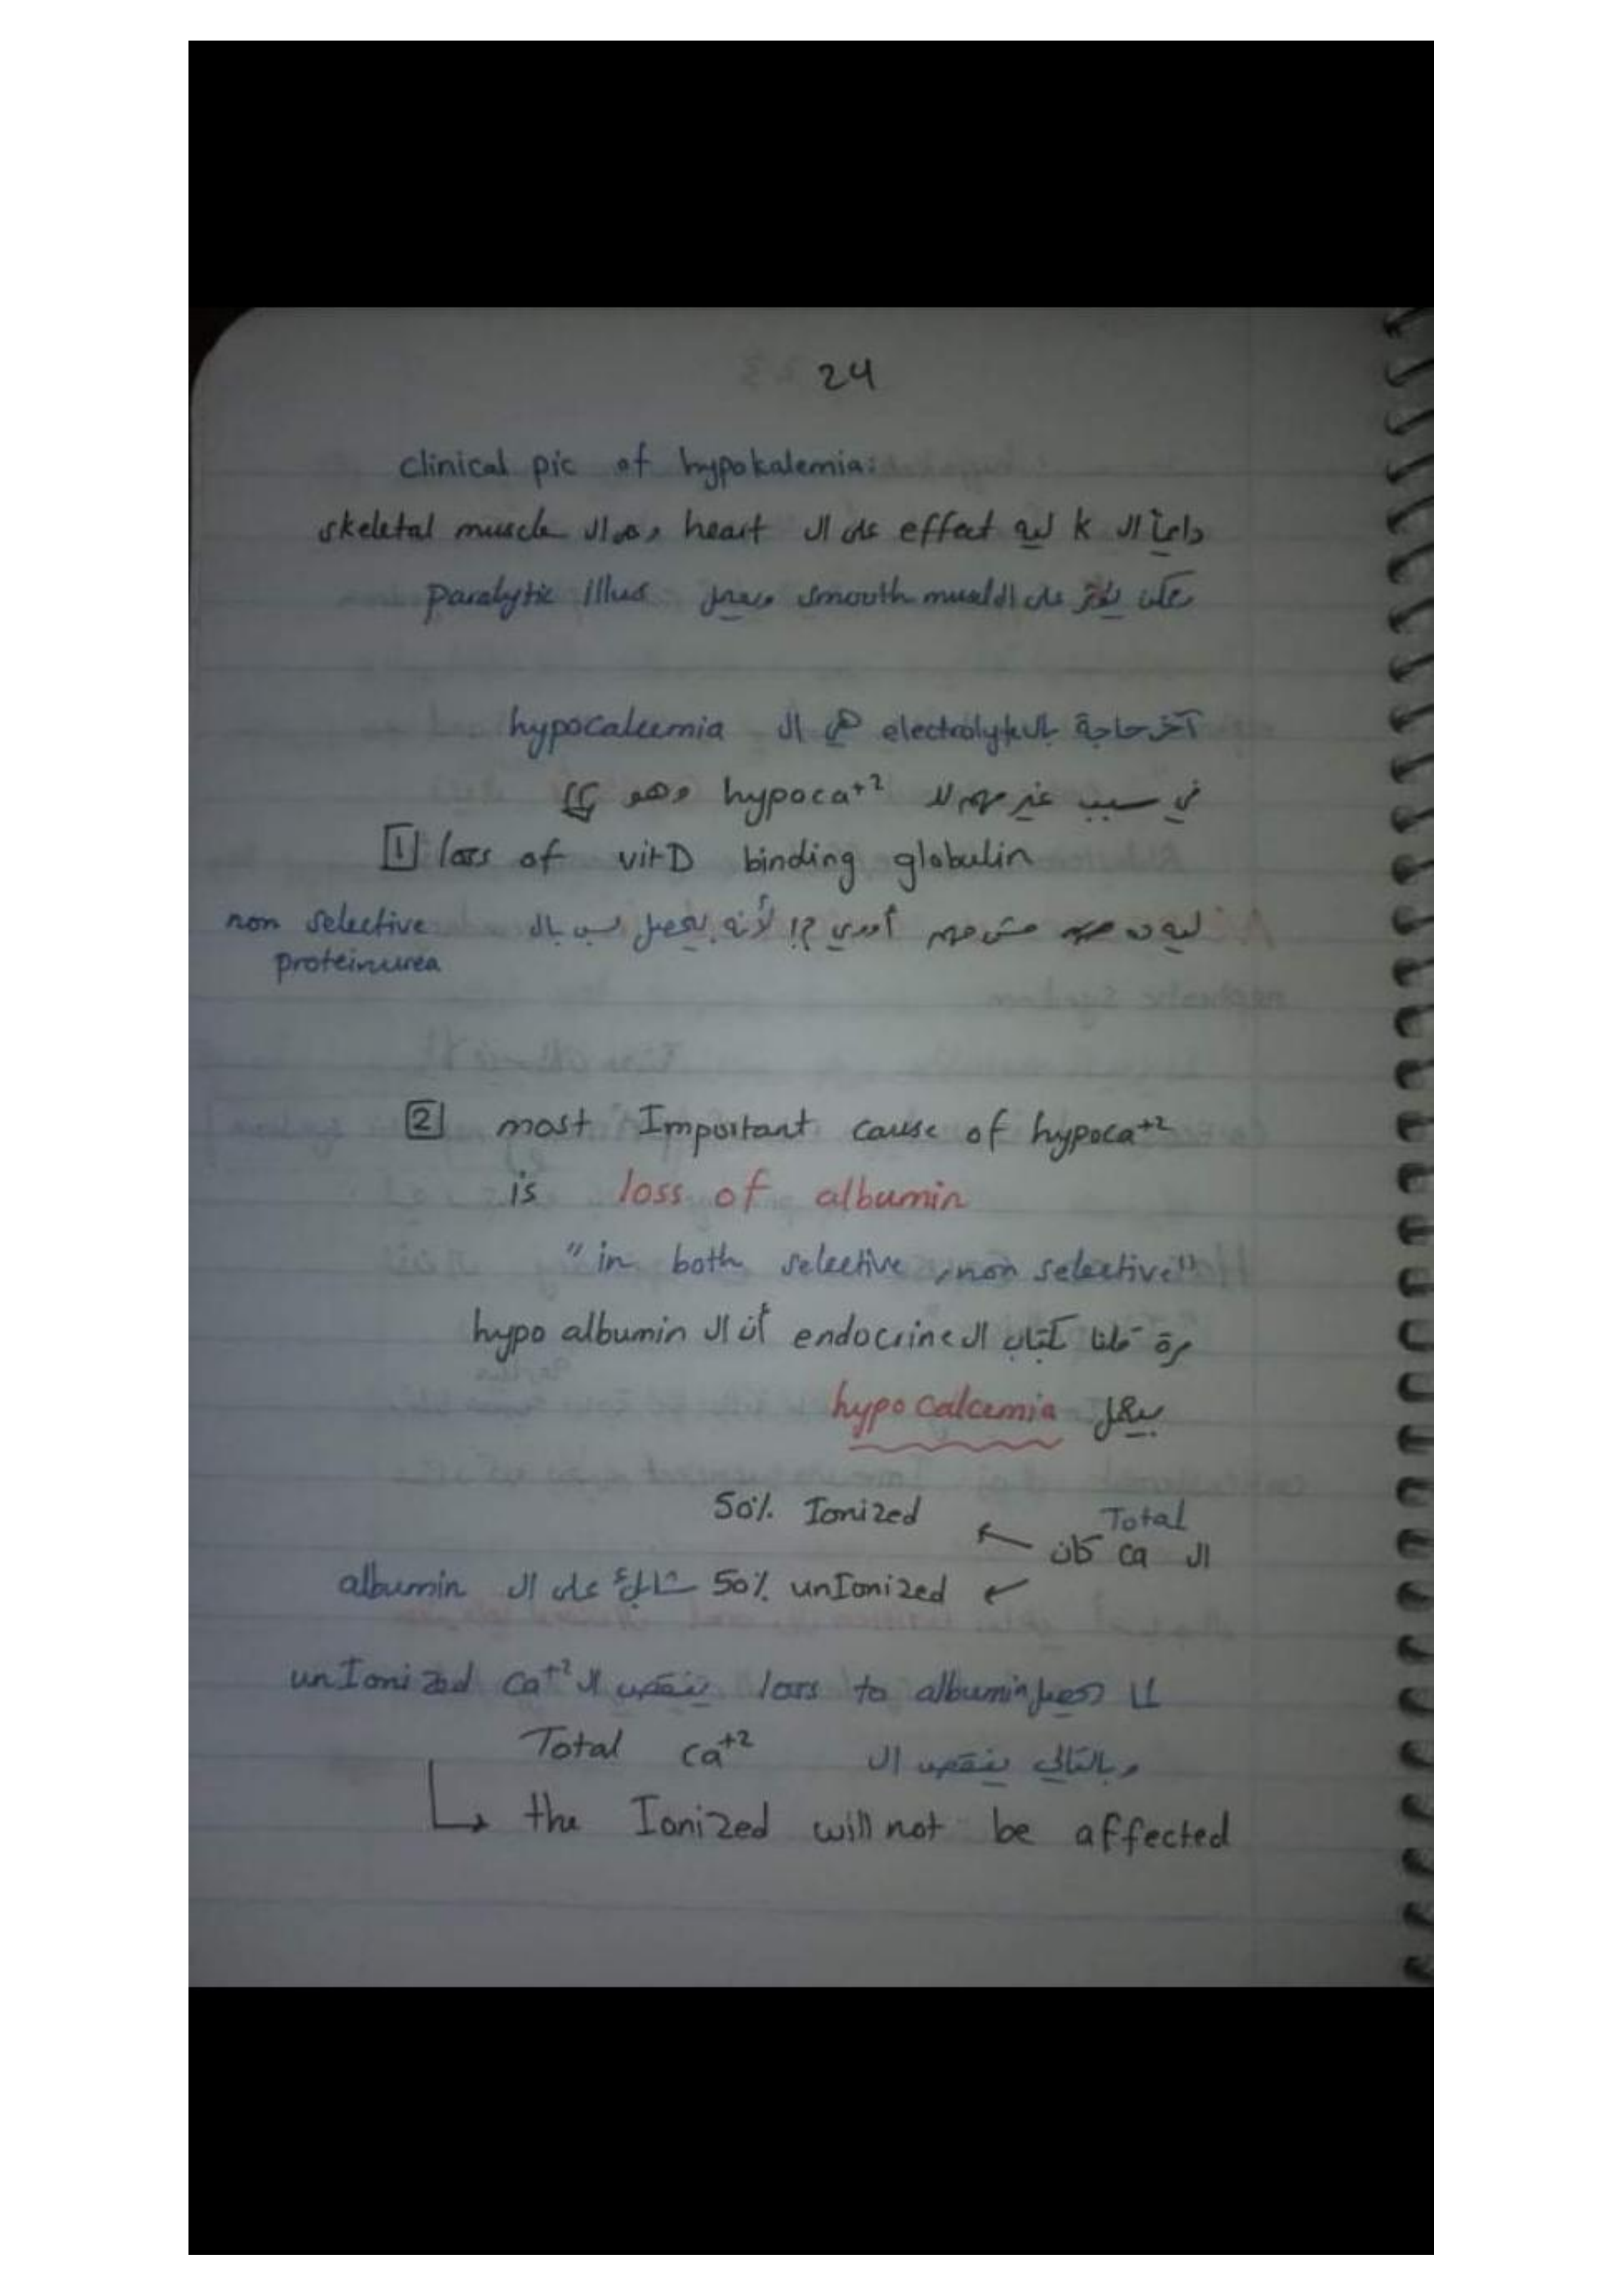 24
clinical pic of hypokalemia:
دايماً ال K ليه effect على ال heart وعال skeletal muscle
ممكن يأثر على ال smooth muscl ويعمل paralytic illus
آخر حاجة بال electrolyte هي ال hypocalcemia
في سبب غير مهم لل hypoca+2 وهو
1 loss of vit D binding globulin
ليه ده مش مهم أوووي ؟! لأنه بيحصل بس بال non selective
proteinurea
2 most Important cause of hypoca+2
is loss of albumin
"in both selective, non selective"
مرة قلنا كتاب ال endocrine أن ال hypo albumin
بيعمل hypocalcemia
50% Ionized
Total
ال ca كان
50% unIonized على ال albumin
لما حصل loss to albumin ينقص ال Ca+2 unIonized
وبالتالي ينقص ال Total Ca+2
the Ionized will not be affected